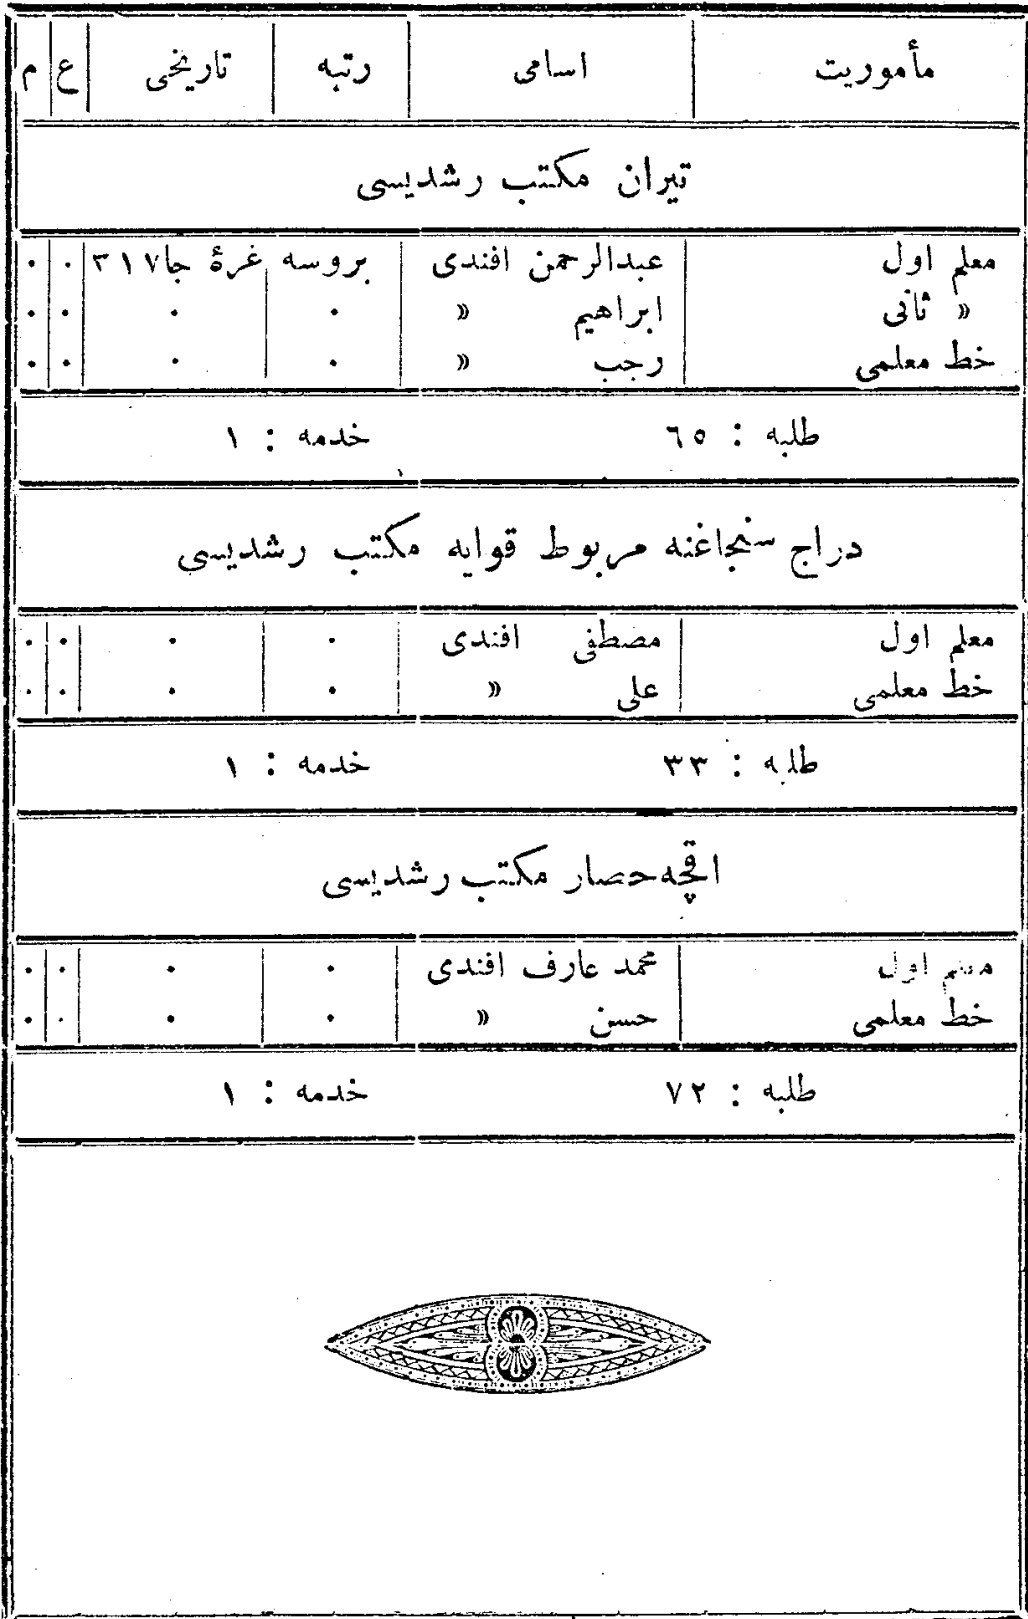 مأموریت اسامی رتبه تاریخی ع م
تیران مکتب رشدیسی
معلم اول عبدالرحمن افندی بروسه غرۀ جا ٣١٧ ٠ ٠
» ثانی ابراهیم » ٠ ٠ ٠ ٠
خط معلمی رجب » ٠ ٠ ٠ ٠
طلبه : ٦٥ خدمه : ١
دراج سنجاغنه مربوط قوایه مکتب رشدیسی
معلم اول مصطفی افندی ٠ ٠ ٠ ٠
خط معلمی علی » ٠ ٠ ٠ ٠
طلبه : ٣٣ خدمه : ١
اقچه حصار مکتب رشدیسی
معلم اول محمد عارف افندی ٠ ٠ ٠ ٠
خط معلمی حسن » ٠ ٠ ٠ ٠
طلبه : ٧٢ خدمه : ١